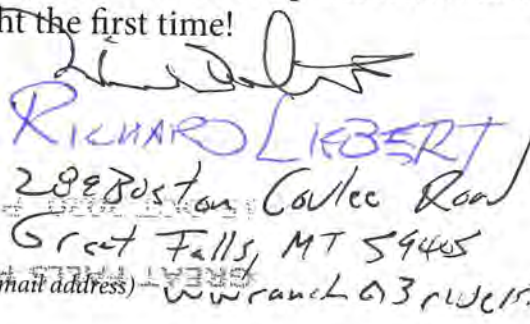 ht the first time!
RICHARD LIEBERT
289 Boston Coulee Road
Great Falls, MT 59405
mail address) wwranch@3rivers.